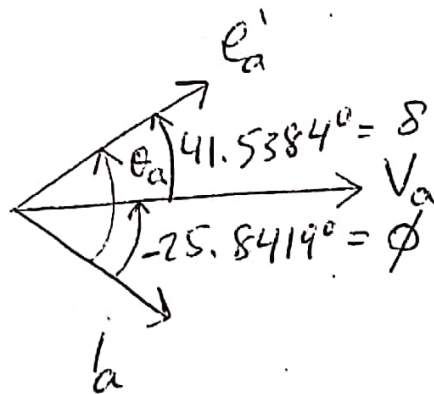 e'a
θa 41.5384° = δ
Va
-25.8419° = φ
ia